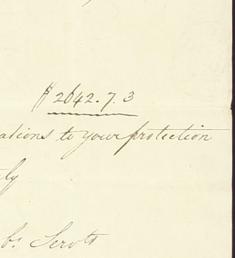 ₶ 2642.7.3
ations to your protection
ly
b. Servt